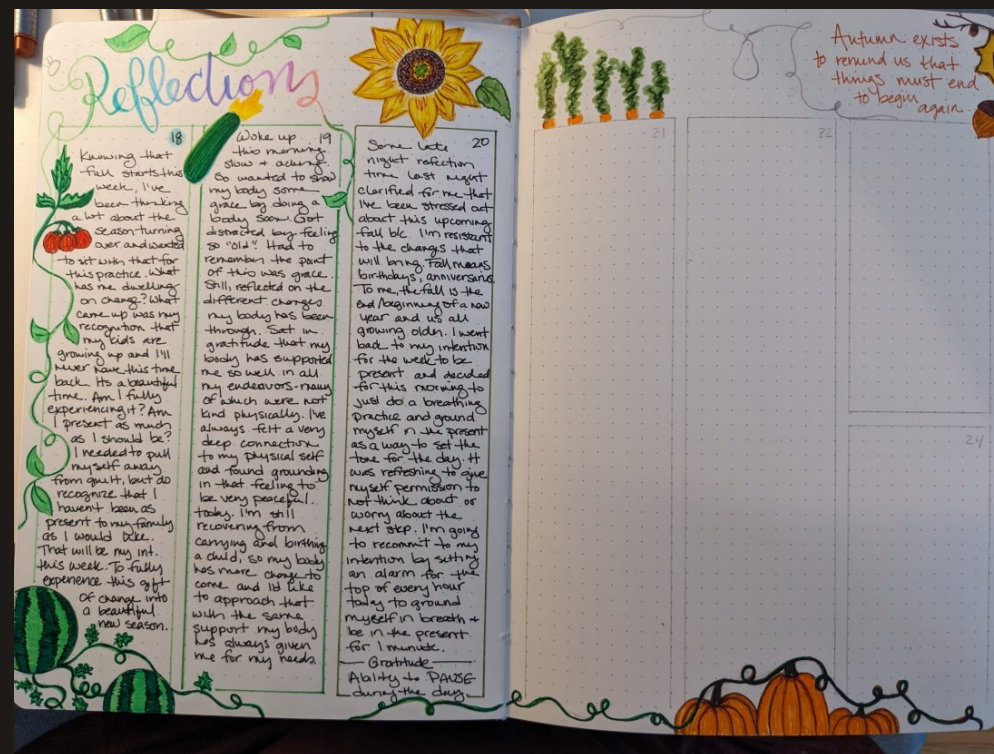 Reflections
18
Knowing that
fall starts this
week, I've
been thinking
a lot about the
season turning
over and wanted
to sit with that for
this practice. What
has me dwelling
on change? What
came up was my
recognition that
my kids are
growing up and I'll
never have this time
back. Its a beautiful
time. Am I fully
experiencing it? Am
I present as much
as I should be?
I needed to pull
myself away
from guilt, but do
recognize that I
haven't been as
present to my family
as I would like.
That will be my int.
this week. To fully
experience this gift
of change into
a beautiful
new season.
19
Woke up
this morning
slow + aching.
So wanted to show
my body some
grace by doing a
body scan. Got
distracted by feeling
so "old". Had to
remember the point
of this was grace.
Still, reflected on the
different changes
my body has been
through. Sat in
gratitude that my
body has supported
me so well in all
my endeavors-many
of which were not
kind physically. I've
always felt a very
deep connection
to my physical self
and found grounding
in that feeling to
be very peaceful
today. I'm still
recovering from
carrying and birthing
a child, so my body
has more change to
come and I'd like
to approach that
with the same
support my body
has always given
me for my needs.
20
Some late
night refection
time last night
clarified for me that
I've been stressed out
about this upcoming
fall b/c I'm resistant
to the changes that
will bring. Fall means
birthdays, anniversaries
To me, the fall is the
end/beginning of a new
year and us all
growing older. I went
back to my intention
for the week to be
present and decided
for this morning to
just do a breathing
practice and ground
myself in the present
as a way to set the
tone for the day. It
was refreshing to give
myself permission to
not think about or
worry about the
next step. I'm going
to recommit to my
intention by setting
an alarm for the
top of every hour
today to ground
myself in breath +
be in the present
for 1 minute.
Gratitude
Ability to PAUSE
during the day
Autumn exists
to remind us that
things must end
to begin
again.
21
22
24